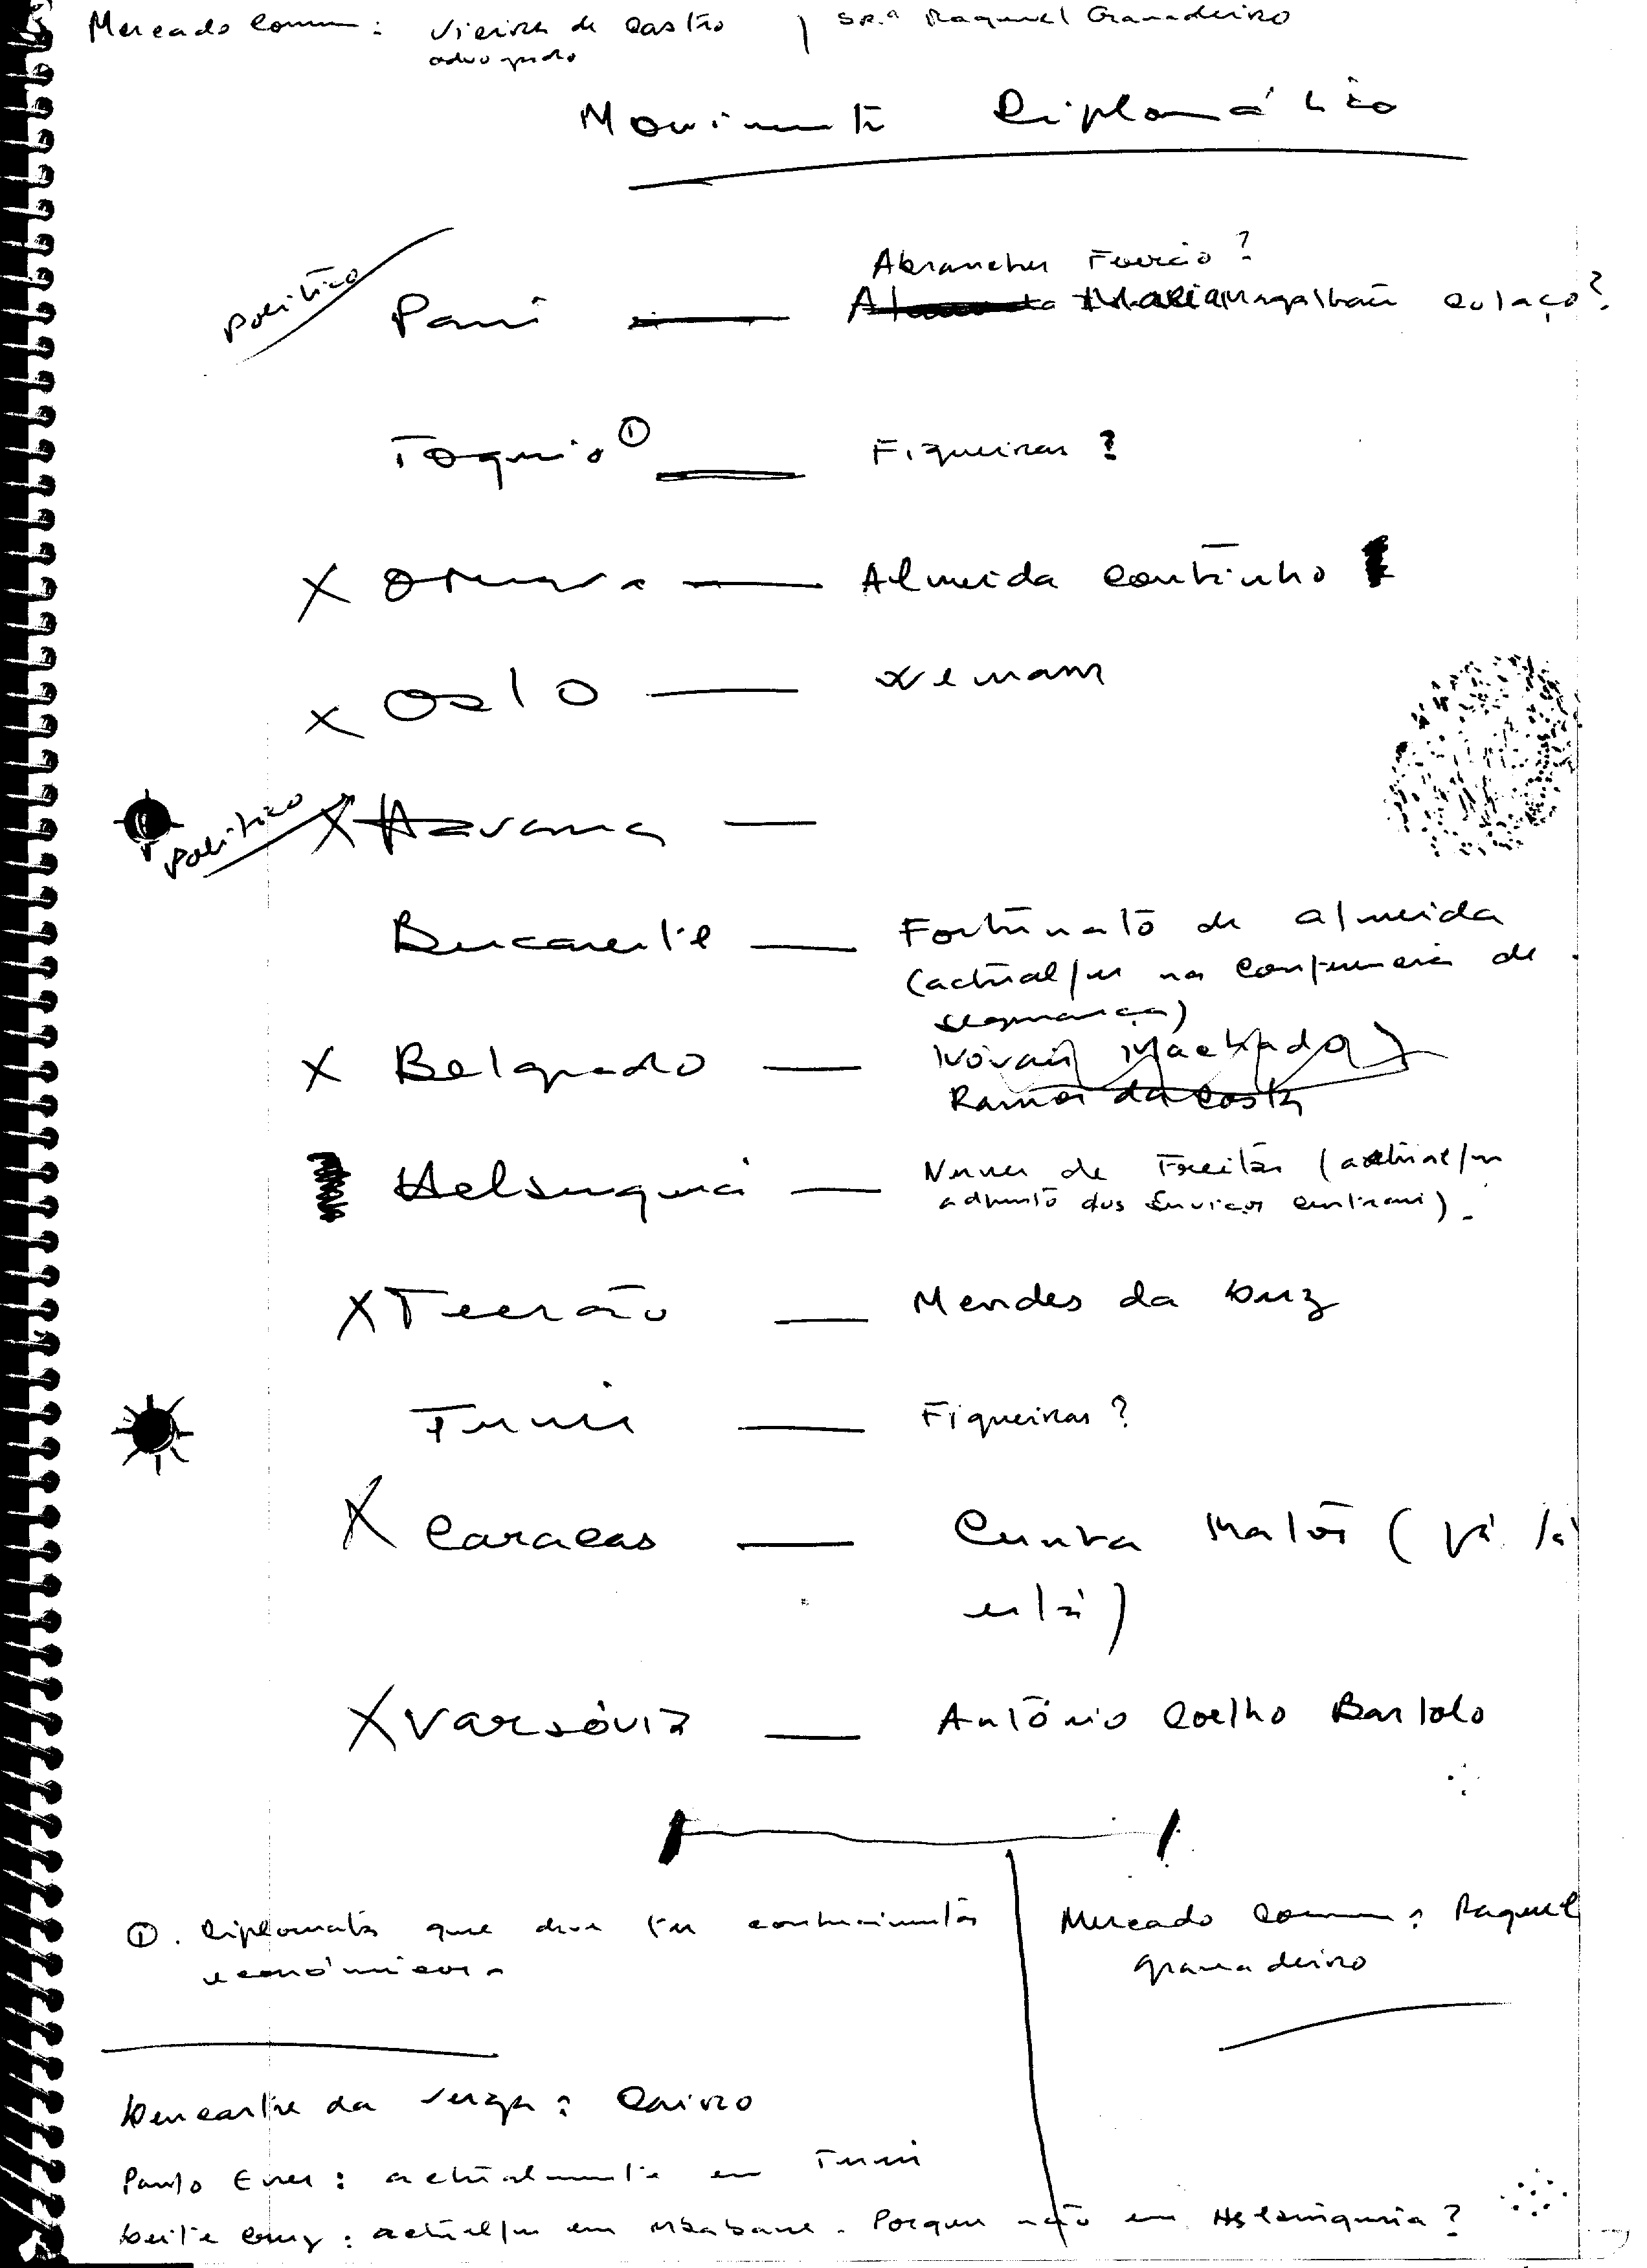 Mercado Comum: Vieira de Castro / Sr.ª Raquel Granadeiro
advogado
Movimento Diplomático
político
Abranches Feijão?
Paris — Magalhães Colaço?
Toquio ① — Figueiras?
X Otava — Almeida Coutinho
X Oslo —
político X Havana —
Bucareste — Fortunato de Almeida
(actual/e na Conferencia de
segurança)
X Belgrado — Novais Machado
Ramos da Costa
Helsinquia — Nunes de Freitas (actual/e
adjunto dos Serviços centrais).
X Teerão — Mendes da Luz
Tunis — Figueiras?
X Caracas — Cunha Matos (já lá
está)
X Varsóvia — António Coelho Bartolo
①. Diplomata que deve ter conhecimentos
económicos.
Mercado Comum: Raquel
Granadeiro
Lencastre da Veiga: Cairo
Paulo Enes: actualmente em Tunis
Leite Cruz: actual/e em Mbabane. Porque não em Helsinquia?